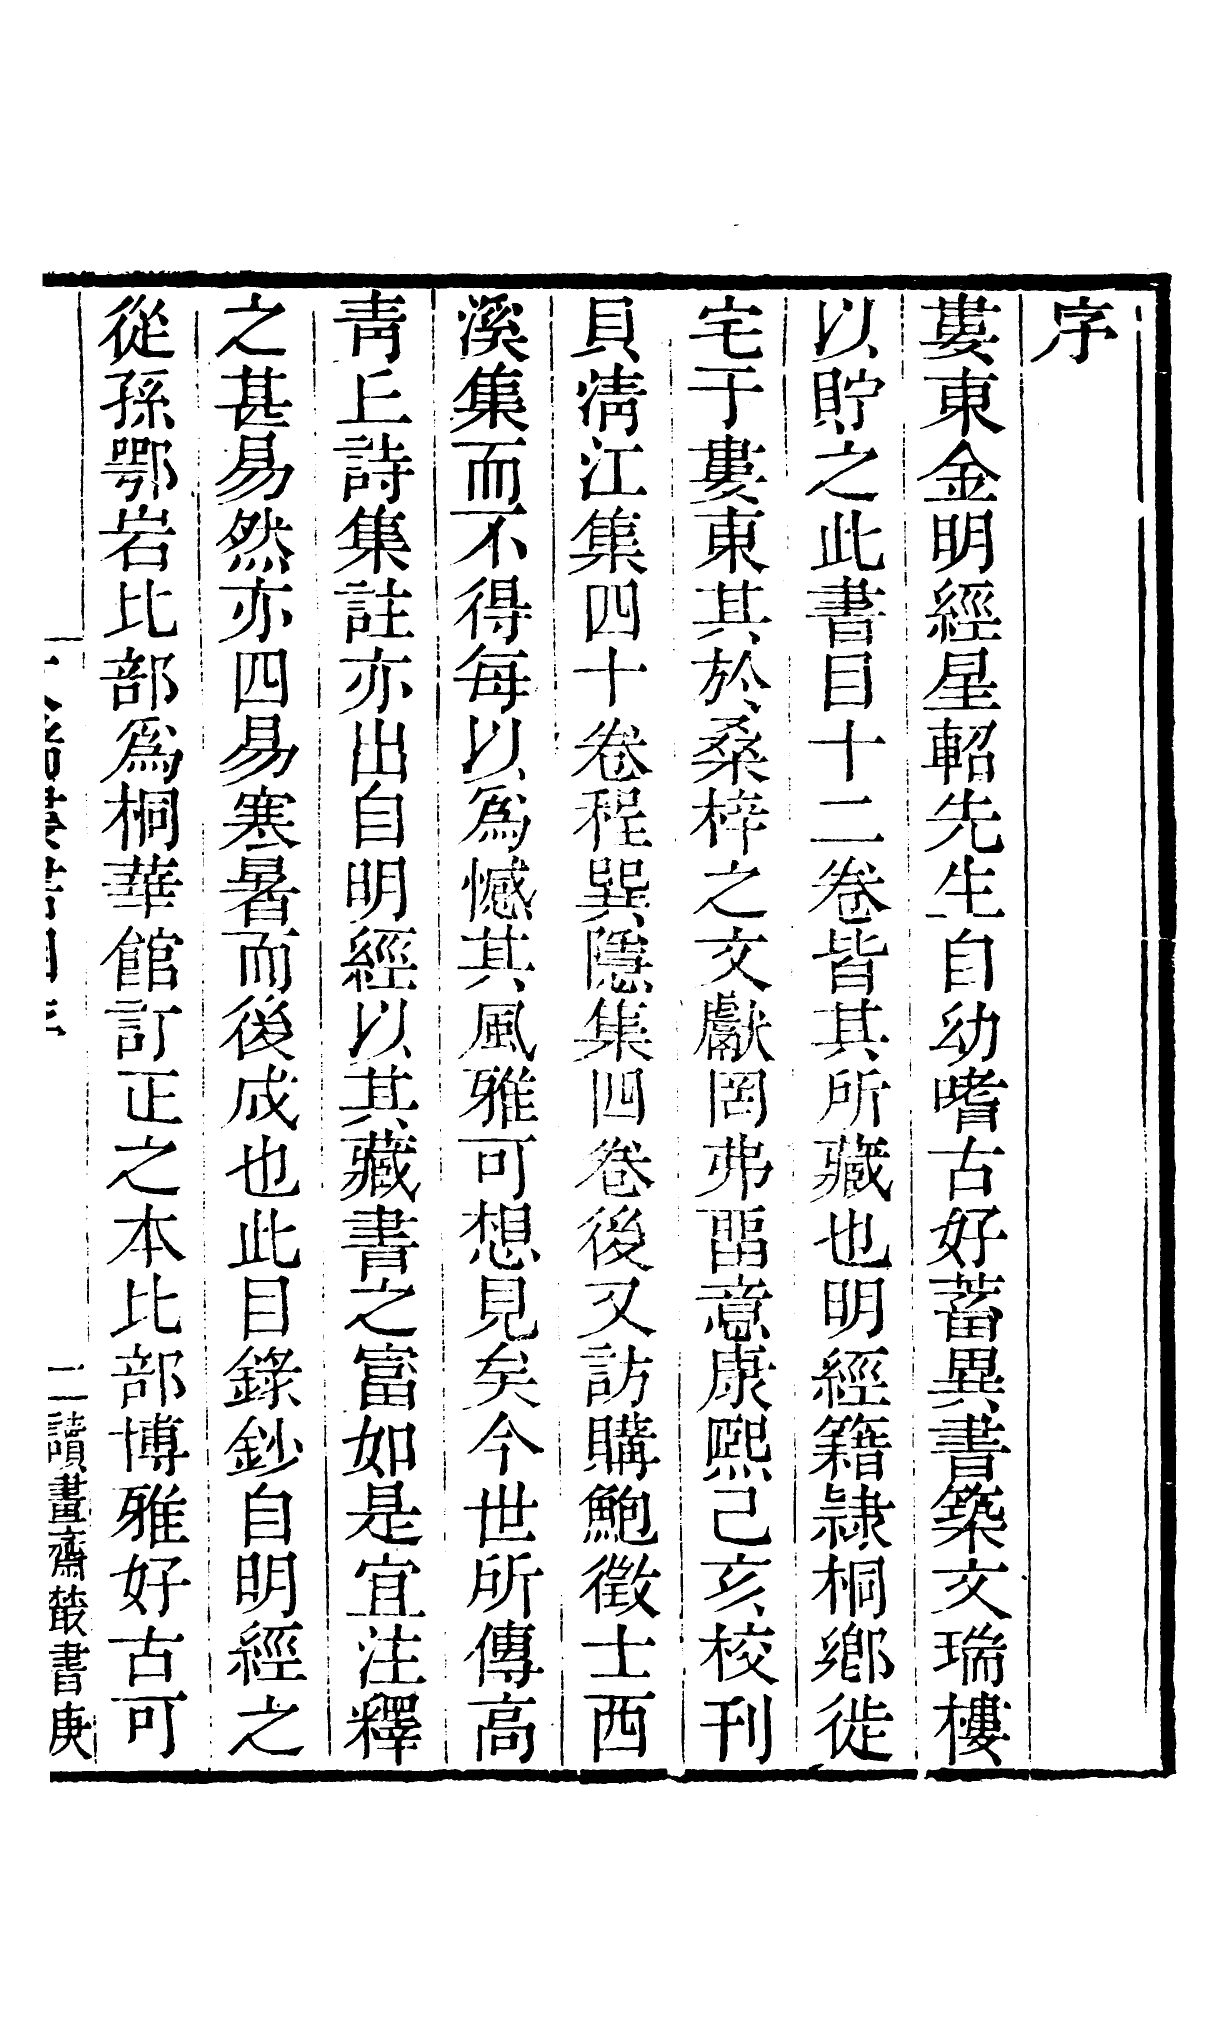 序
婁東金明經星軺先生自幼嗜古好蓄異書築文瑞樓
以貯之此書目十二卷皆其所藏也明經籍隷桐鄉徙
宅于婁東其於桑梓之文獻罔弗畱意康熙己亥校刊
貝淸江集四十卷程巽隱集四卷後又訪購鮑徵士西
溪集而不得每以爲憾其風雅可想見矣今世所傳高
靑丘詩集註亦出自明經以其藏書之富如是宜注釋
之甚易然亦四易寒暑而後成也此目錄鈔自明經之
從孫鄂岩比部爲桐華館訂正之本比部博雅好古可
二讀畫齋叢書庚